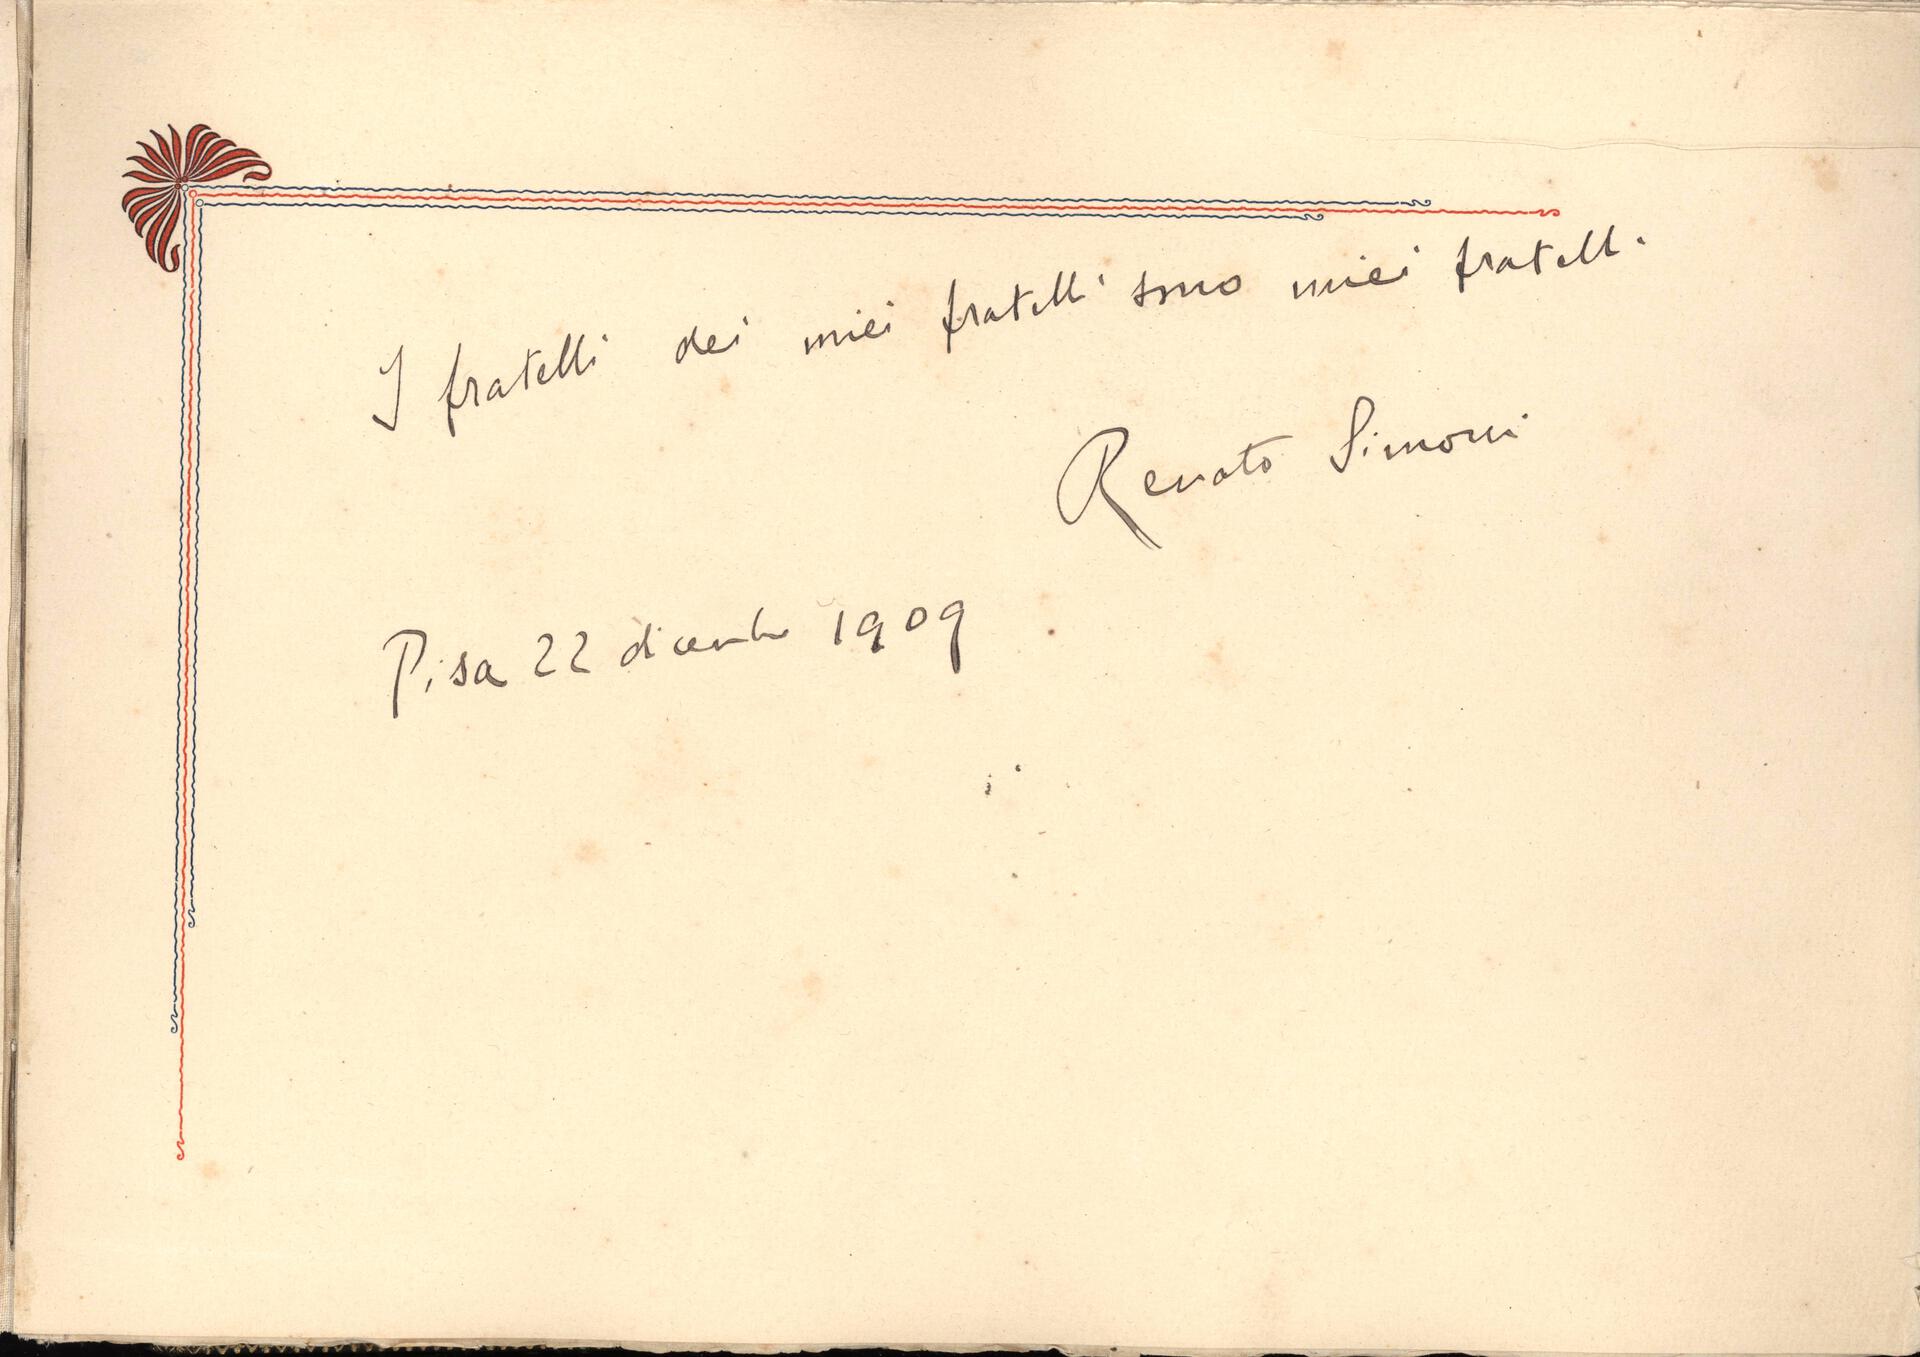 I fratelli dei miei fratelli sono miei fratelli.
Renato Simoni
Pisa 22 dicembre 1909